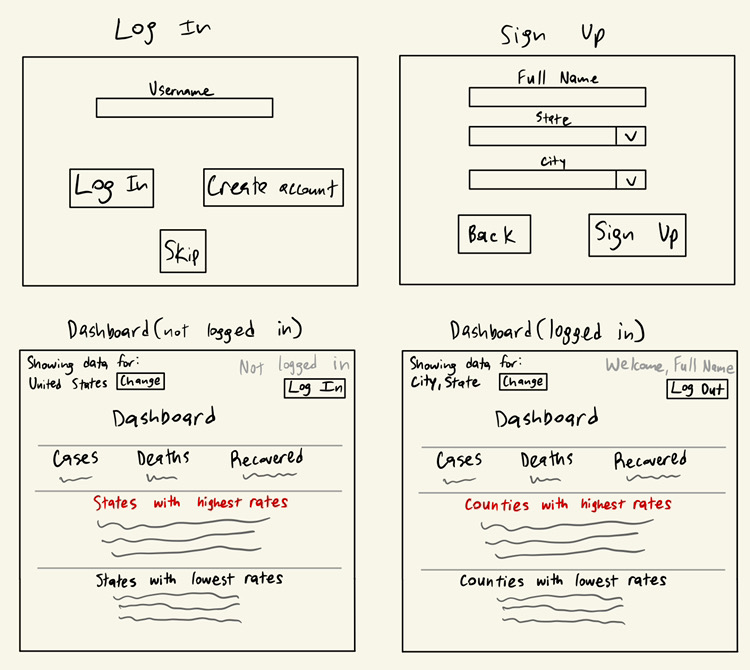 Log In
Username
Log In
Create account
Skip
Sign Up
Full Name
State
City
Back
Sign Up
Dashboard (not logged in)
Showing data for:
Not logged in
United States
Change
Log In
Dashboard
Cases
Deaths
Recovered
States with highest rates
States with lowest rates
Dashboard (logged in)
Showing data for:
Welcome, Full Name
City, State
Change
Log Out
Dashboard
Cases
Deaths
Recovered
Counties with highest rates
Counties with lowest rates